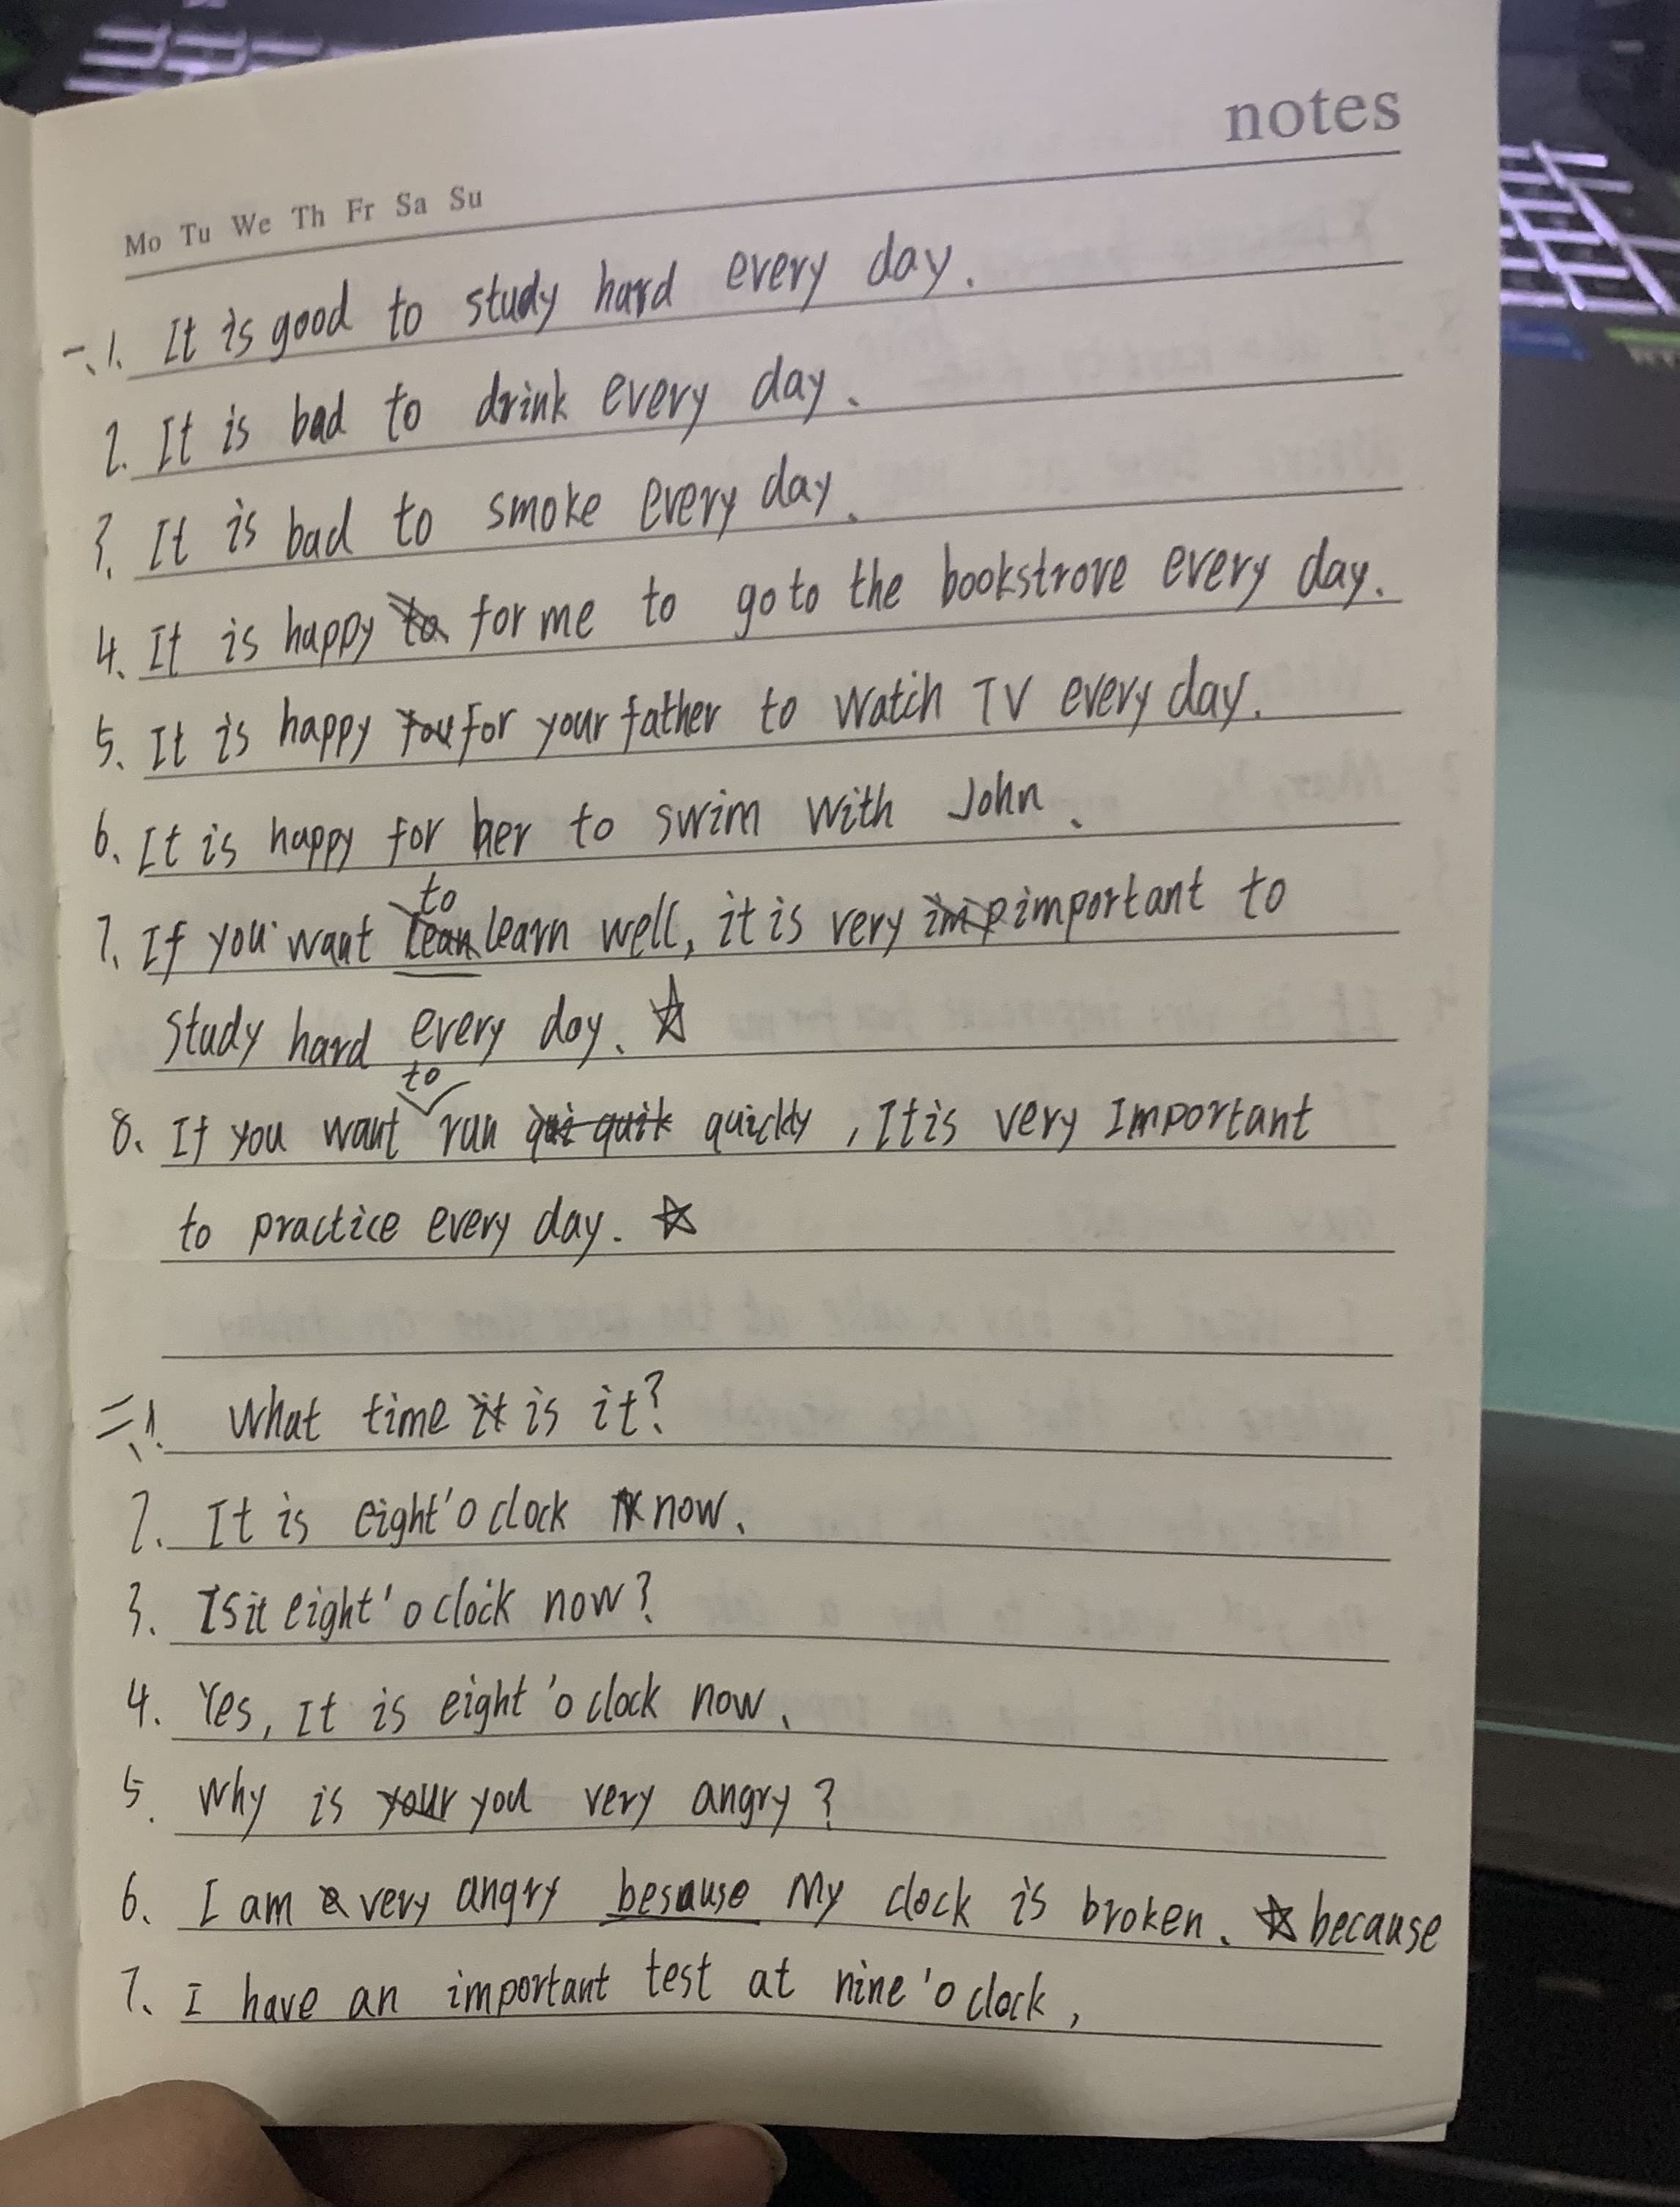 notes
Mo Tu We Th Fr Sa Su
一、1. It is good to study hard every day.
2. It is bad to drink every day.
3. It is bad to smoke every day.
4. It is happy for me to go to the bookstrove every day.
5. It is happy for your father to watch TV every day.
6. It is happy for her to swim with John.
to
7. If you want learn well, it is very important to
study hard every doy. ☆
to
8. If you want run quickly, It is very Important
to practice every day. ☆
二、1. What time is it?
2. It is eight'o clock now.
3. Is it eight'o clock now?
4. Yes, It is eight 'o clock now.
5. Why is you very angry?
6. I am very angry besause My clock is broken. ☆ because
7. I have an important test at nine 'o clock,